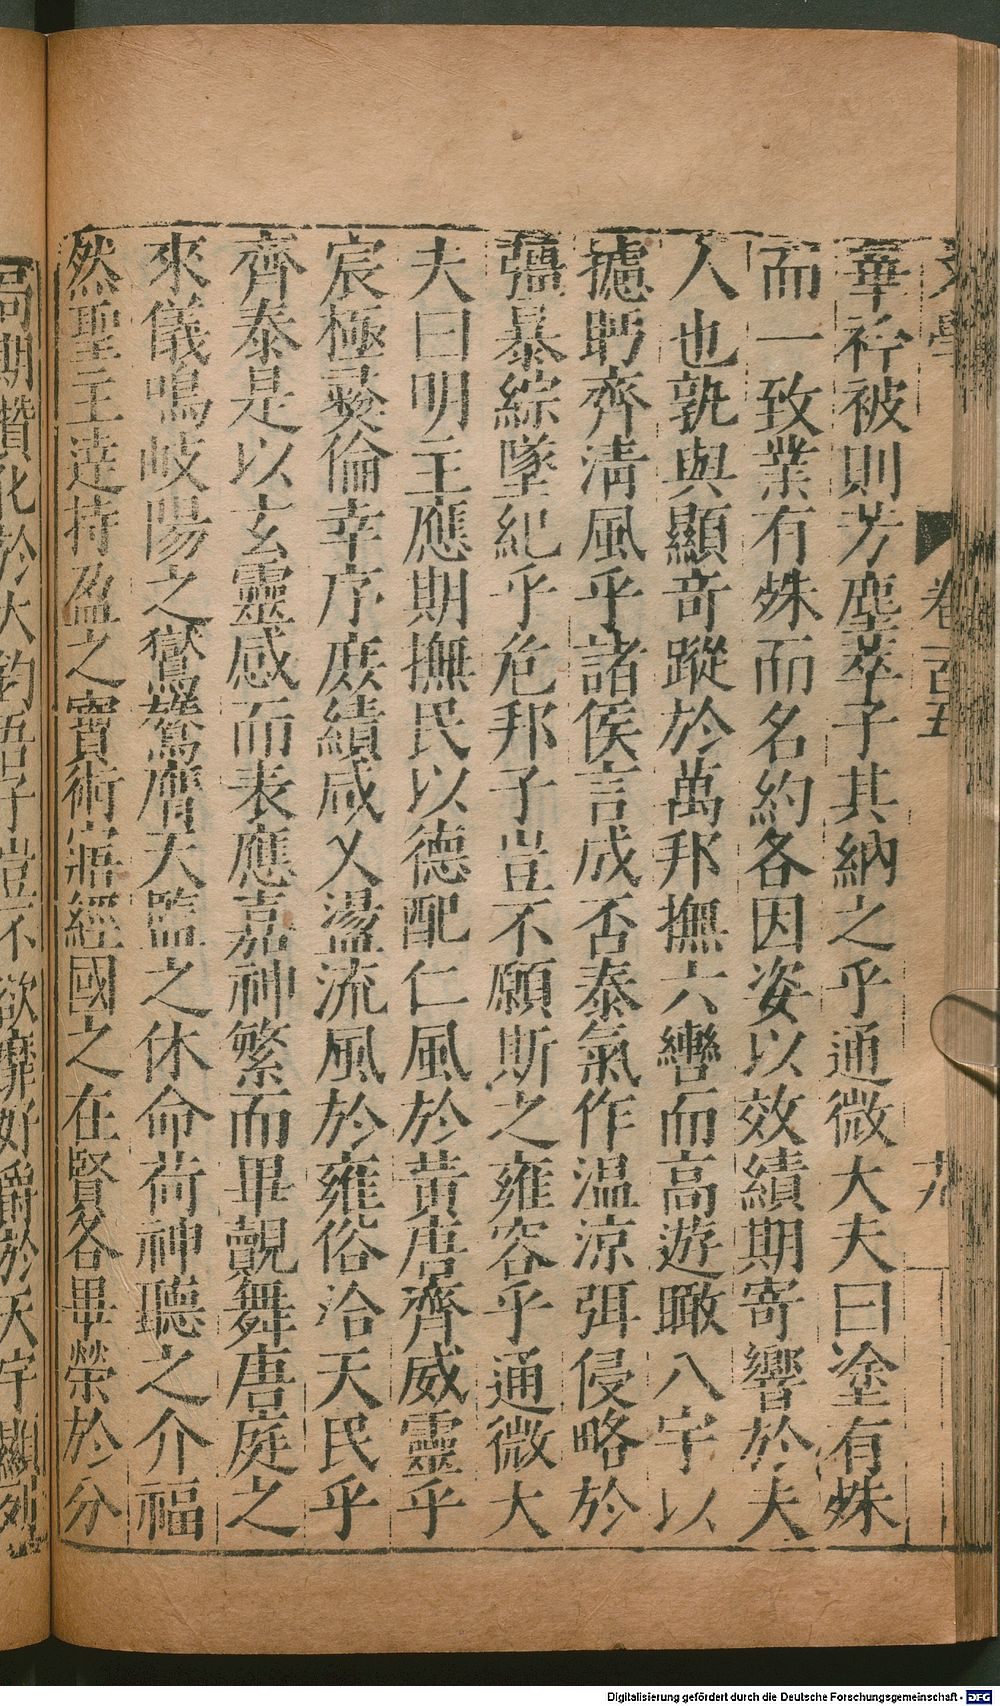 華衿被則芳塵萃子其納之乎通微大夫曰塗有殊
而一致業有殊而名約各因姿以效績期寄響於夫
人也孰與顯奇蹤於萬邦撫六轡而高遊瞰八宇以
攄眄齊清風乎諸侯言成否泰氣作溫涼弭侵略於
彊暴綜墜紀乎危邦子豈不願斯之雍容乎通微大
夫曰明主應期撫民以德配仁風於黃唐齊威靈乎
宸極彛倫幸序庶績咸乂盪流風於雍俗洽天民乎
齊泰是以玄靈感而表應嘉神繁而畢覿舞唐庭之
來儀鳴岐陽之鸑鷟膺天監之休命荷神聽之介福
然聖主達持盈之寶術寤經國之在賢各畢榮於分
局期贊化於大鈞吾子豈不欲靡好爵於天宇顯列
文學
卷一百五
九
Digitalisierung gefördert durch die Deutsche Forschungsgemeinschaft - DFG